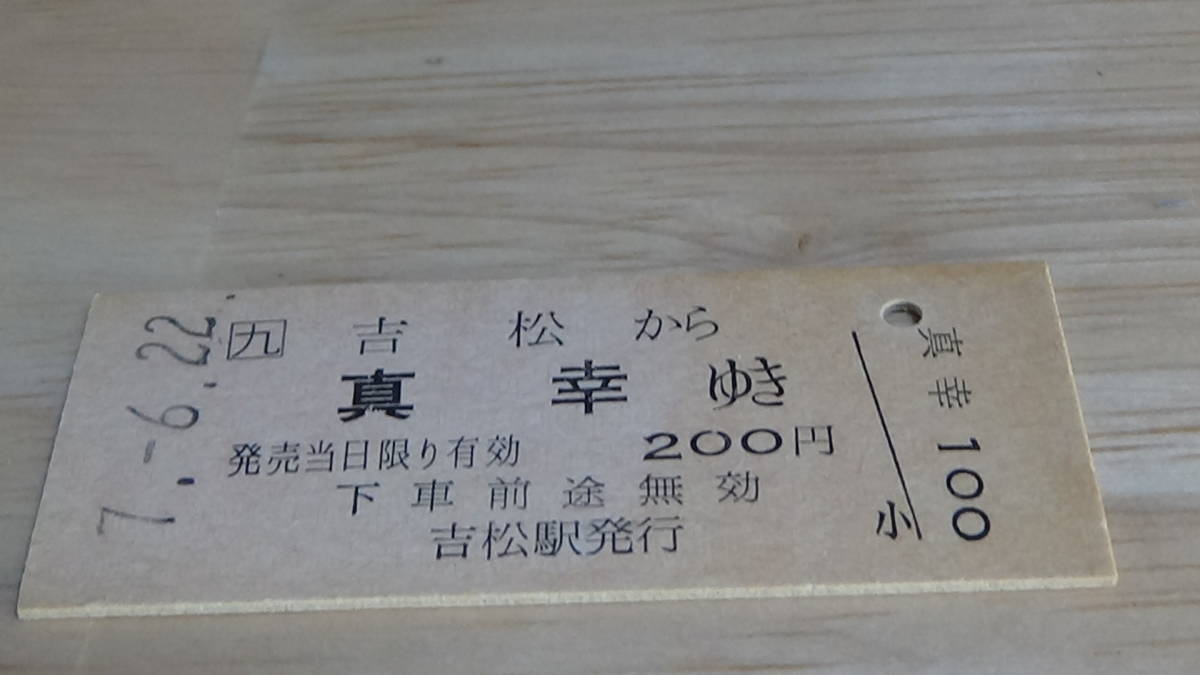 7.-6.22
九 吉松から
真幸ゆき
発売当日限り有効 200円
下車前途無効
吉松駅発行
小
真幸100